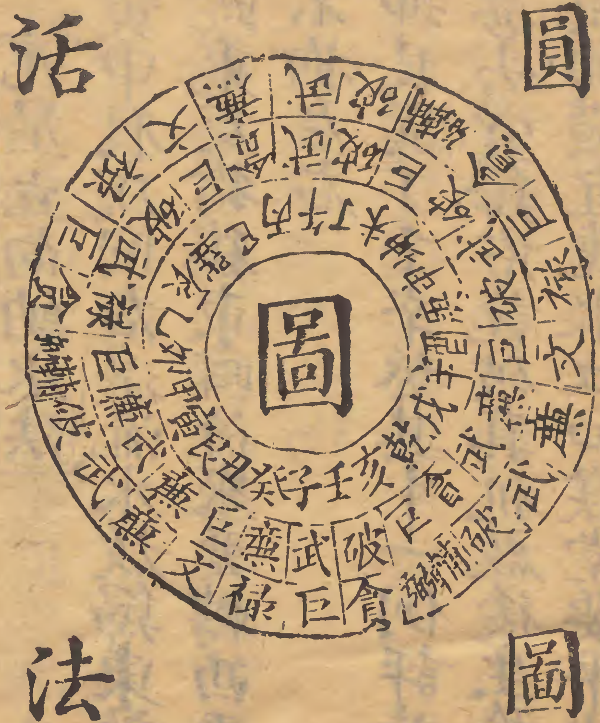 圓圖
活法
圖
子癸丑艮寅甲卯乙辰巽巳丙午丁未坤申庚酉辛戌乾亥壬
武廉巨廉武廉巨祿武破巨貪武破巨破武破巨廉武貪巨破
巨祿文廉武破輔弼貪巨祿文廉武破輔弼貪巨祿文廉武破輔弼貪